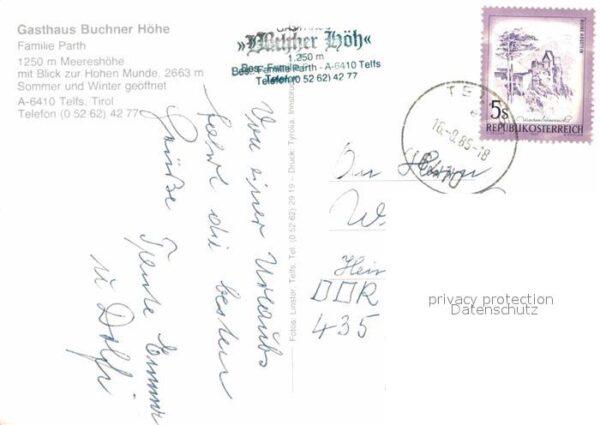 Gasthaus Buchner Höhe
Familie Parth
1250 m Meereshöhe
mit Blick zur Hohen Munde, 2663 m
Sommer und Winter geöffnet
A-6410 Telfs, Tirol
Telefon (0 52 62) 42 77
Höh«
1.250 m
Bes. Familie Parth - A-6410 Telfs
Telefon (0 52 62) 42 77
5s
REPUBLIK ÖSTERREICH
TE
16. 85-18
Von einer Urlaubs
fahrt die besten
Grüße
Tante Emmi
u Dolfi
Fotos: Linster, Telfs, Tel. (0 52 62) 29 19 - Druck: Tyrolia, Innsbruck
An
W
Hein
DDR
435
privacy protection
Datenschutz